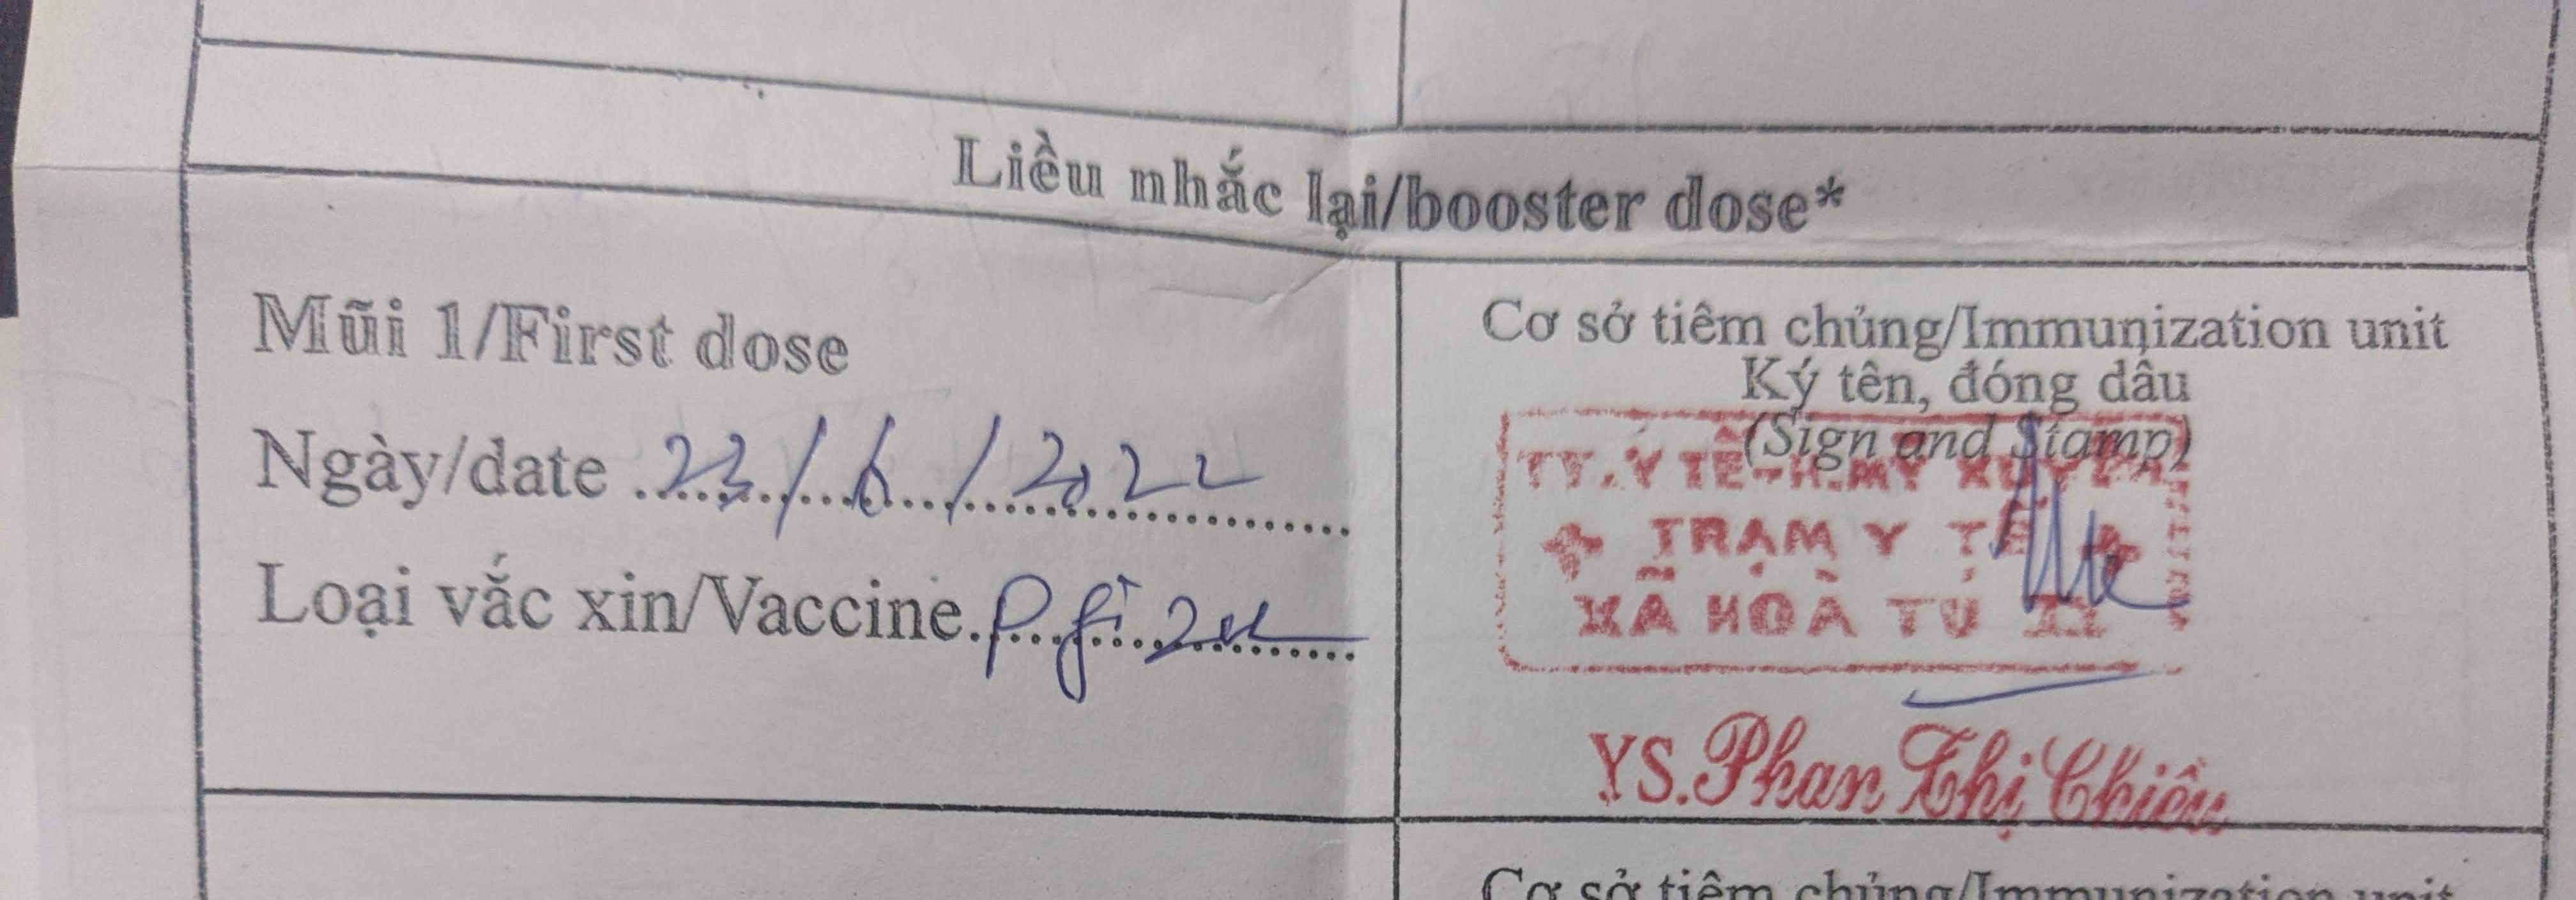 Liều nhắc lại/booster dose*
Mũi 1/First dose
Ngày/date 23/6/2022
Loại vắc xin/Vaccine Pfizer
Cơ sở tiêm chủng/Immunization unit
Ký tên, đóng dấu
(Sign and Stamp)
TT.Y TẾ-H.MỸ XUYÊN
TRẠM Y TẾ
XÃ HOÀ TÚ II
YS.Phan Thị Chiều
Cơ sở tiêm chủng/Immunization unit